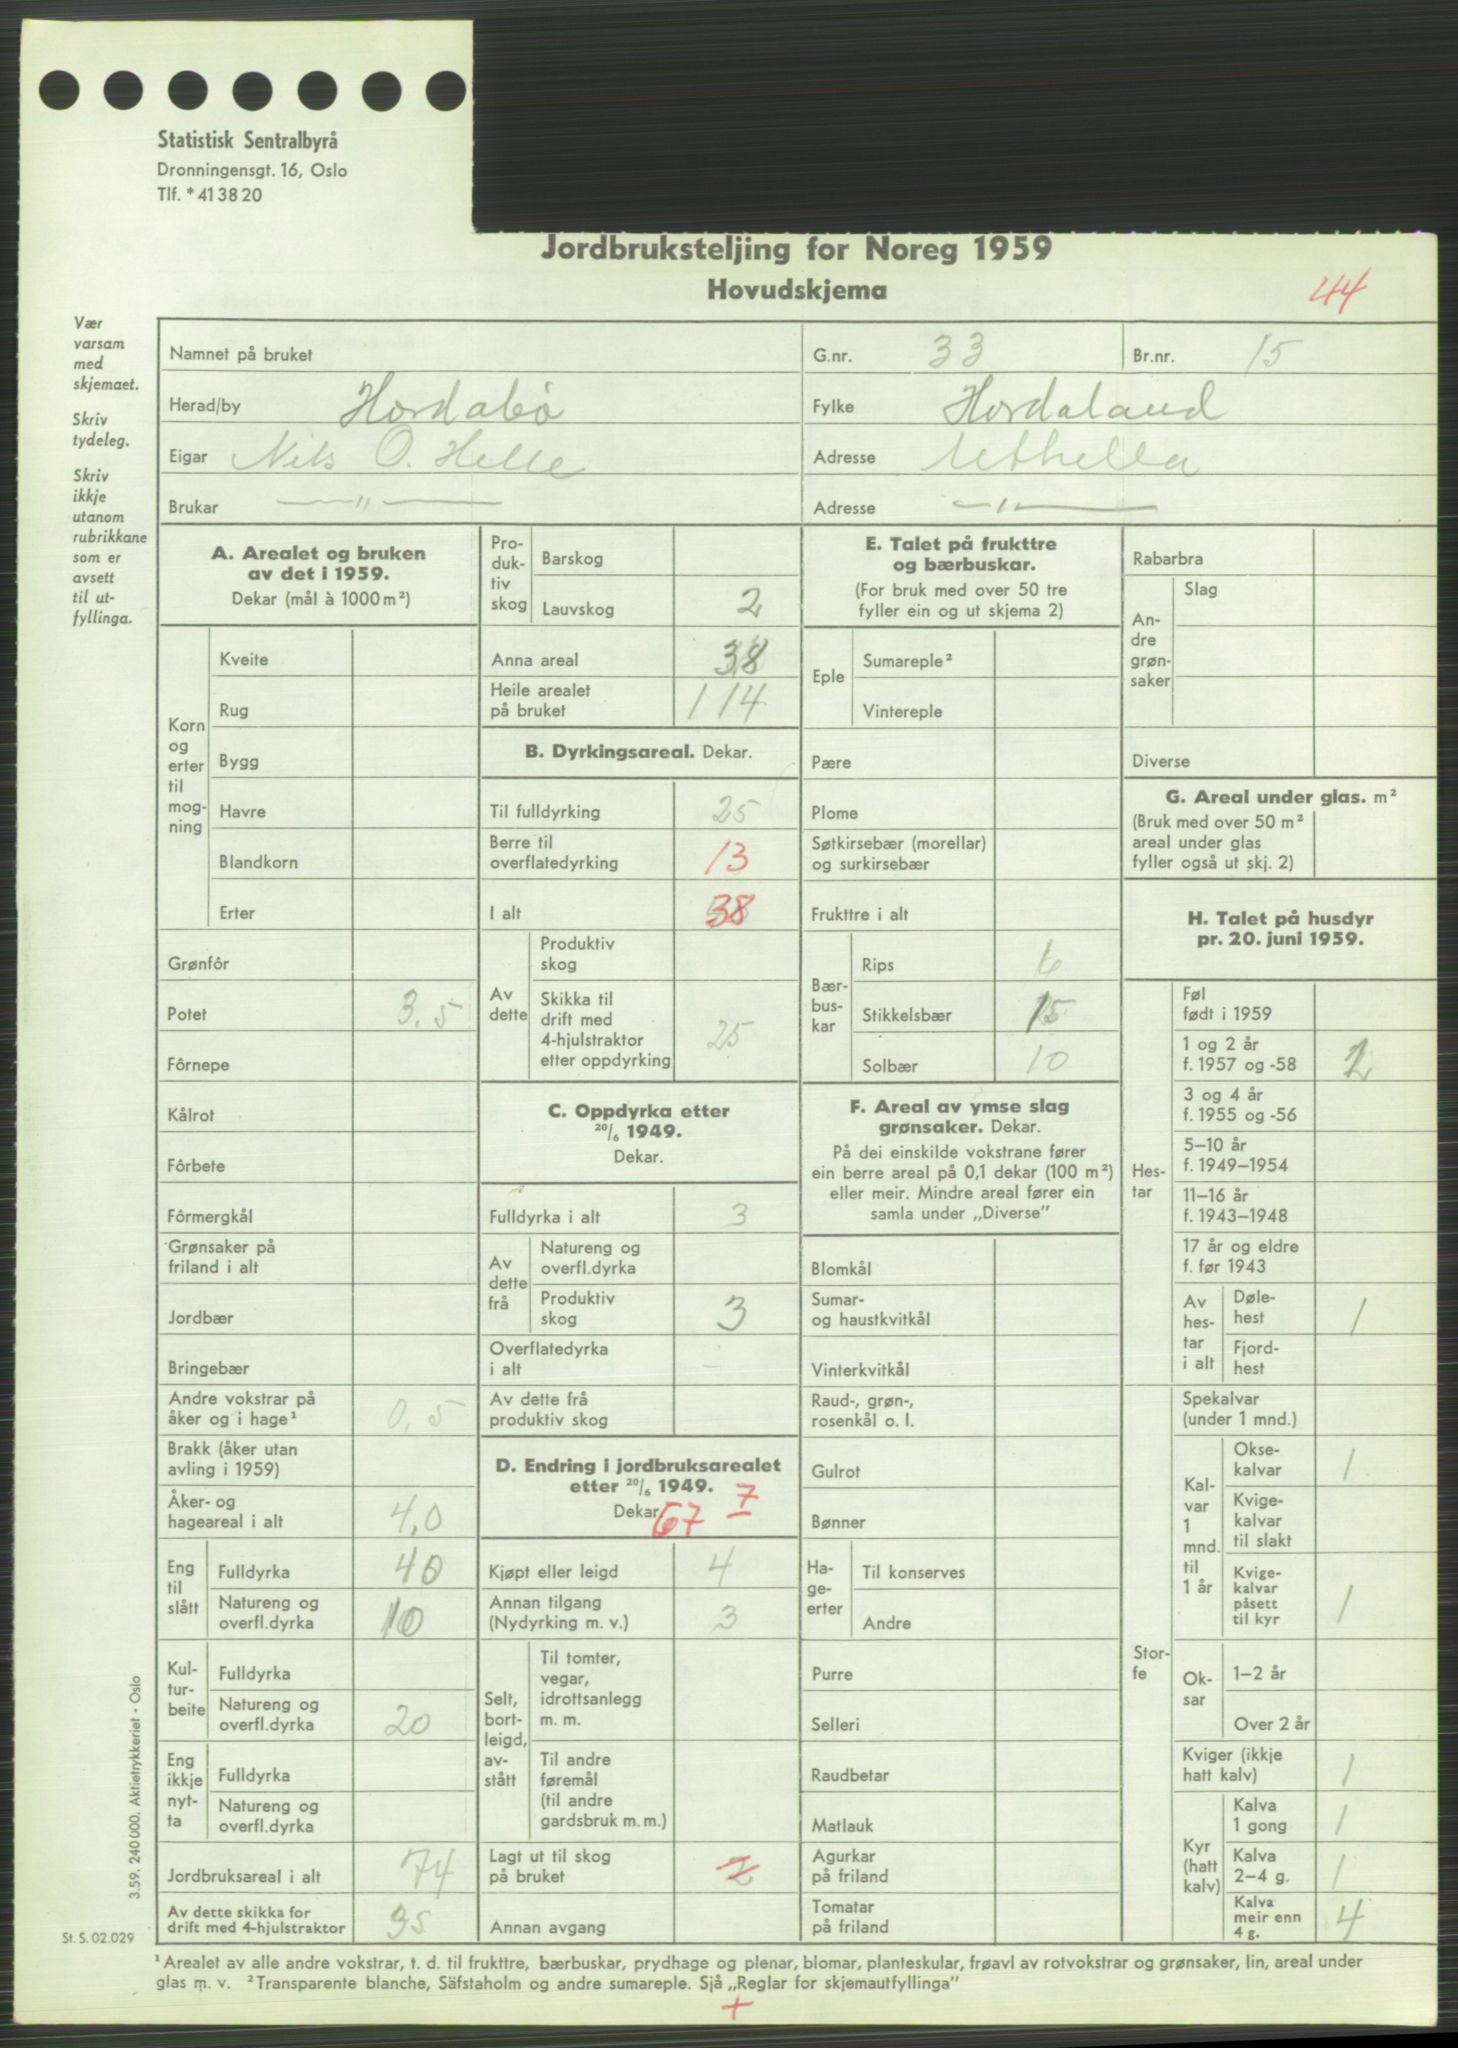 Statistisk Sentralbyrå
Dronningensgt. 16, Oslo
Tlf. * 41 38 20
Jordbruksteljing for Noreg 1959
Hovudskjema
44
Vær
varsam
med
skjemaet.
Skriv
tydeleg.
Skriv
ikkje
utanom
rubrikkane
som er
avsett
til ut-
fyllinga.
Namnet på bruket
G.nr. 33
Br.nr. 15
Herad/by Hordabø
Fylke Hordaland
Eigar Nils O. Helle
Adresse Uthella
Brukar —〃—
Adresse —〃—
A. Arealet og bruken
av det i 1959.
Dekar (mål à 1000 m²)
Korn
og
erter
til
mog-
ning
Kveite
Rug
Bygg
Havre
Blandkorn
Erter
Grønfôr
Potet 3,5
Fôrnepe
Kålrot
Fôrbete
Fôrmergkål
Grønsaker på
friland i alt
Jordbær
Bringebær
Andre vokstrar på
åker og i hage¹ 0,5
Brakk (åker utan
avling i 1959)
Åker- og
hageareal i alt 4,0
Eng
til
slått
Fulldyrka 40
Natureng og
overfl.dyrka 10
Kul-
tur-
beite
Fulldyrka
Natureng og
overfl.dyrka 20
Eng
ikkje
nyt-
ta
Fulldyrka
Natureng og
overfl.dyrka
Jordbruksareal i alt 74
Av dette skikka for
drift med 4-hjulstraktor 35
Pro-
duk-
tiv
skog
Barskog
Lauvskog 2
Anna areal 38
Heile arealet
på bruket 114
B. Dyrkingsareal. Dekar.
Til fulldyrking 25
Berre til
overflatedyrking 13
I alt 38
Av
dette
Produktiv
skog
Skikka til
drift med
4-hjulstraktor
etter oppdyrking 25
C. Oppdyrka etter
20/6 1949.
Dekar.
Fulldyrka i alt 3
Av
dette
frå
Natureng og
overfl.dyrka
Produktiv
skog 3
Overflatedyrka
i alt —
Av dette frå
produktiv skog
D. Endring i jordbruksarealet
etter 20/6 1949. 7
Dekar. 67
Kjøpt eller leigd 4
Annan tilgang
(Nydyrking m. v.) 3
Selt,
bort-
leigd,
av-
stått
Til tomter,
vegar,
idrottsanlegg
m. m.
Til andre
føremål
(til andre
gardsbruk m. m.)
Lagt ut til skog
på bruket 2
Annan avgang
E. Talet på frukttre
og bærbuskar.
(For bruk med over 50 tre
fyller ein og ut skjema 2)
Eple
Sumareple²
Vintereple
Pære
Plome
Søtkirsebær (morellar)
og surkirsebær
Frukttre i alt
Bær-
bus-
kar
Rips 6
Stikkelsbær 15
Solbær 10
F. Areal av ymse slag
grønsaker. Dekar.
På dei einskilde vokstrane fører
ein berre areal på 0,1 dekar (100 m²)
eller meir. Mindre areal fører ein
samla under „Diverse”
Blomkål
Sumar-
og haustkvitkål
Vinterkvitkål
Raud-, grøn-,
rosenkål o. l.
Gulrot
Bønner
Ha-
ge-
erter
Til konserves
Andre
Purre
Selleri
Raudbetar
Matlauk
Agurkar
på friland
Tomatar
på friland
Rabarbra
An-
dre
grøn-
saker
Slag
Diverse
G. Areal under glas. m²
(Bruk med over 50 m²
areal under glas
fyller også ut skj. 2)
H. Talet på husdyr
pr. 20. juni 1959.
Hes-
tar
Føl
født i 1959
1 og 2 år
f. 1957 og -58 2
3 og 4 år
f. 1955 og -56
5–10 år
f. 1949–1954
11–16 år
f. 1943–1948
17 år og eldre
f. før 1943
Av
hes-
tar
i alt
Døle-
hest 1
Fjord-
hest
Stor-
fe
Spekalvar
(under 1 mnd.)
Kal-
var
1
mnd.
til
1 år
Okse-
kalvar 1
Kvige-
kalvar
til slakt
Kvige-
kalvar
påsett
til kyr 1
Ok-
sar
1–2 år
Over 2 år
Kviger (ikkje
hatt kalv) 1
Kyr
(hatt
kalv)
Kalva
1 gong 1
Kalva
2–4 g. 1
Kalva
meir enn
4 g. 4
3.59. 240 000. Aktietrykkeriet - Oslo
St. S. 02.029
¹ Arealet av alle andre vokstrar, t. d. til frukttre, bærbuskar, prydhage og plenar, blomar, planteskular, frøavl av rotvokstrar og grønsaker, lin, areal under
glas m. v. ² Transparente blanche, Säfstaholm og andre sumareple. Sjå „Reglar for skjemautfyllinga”
+